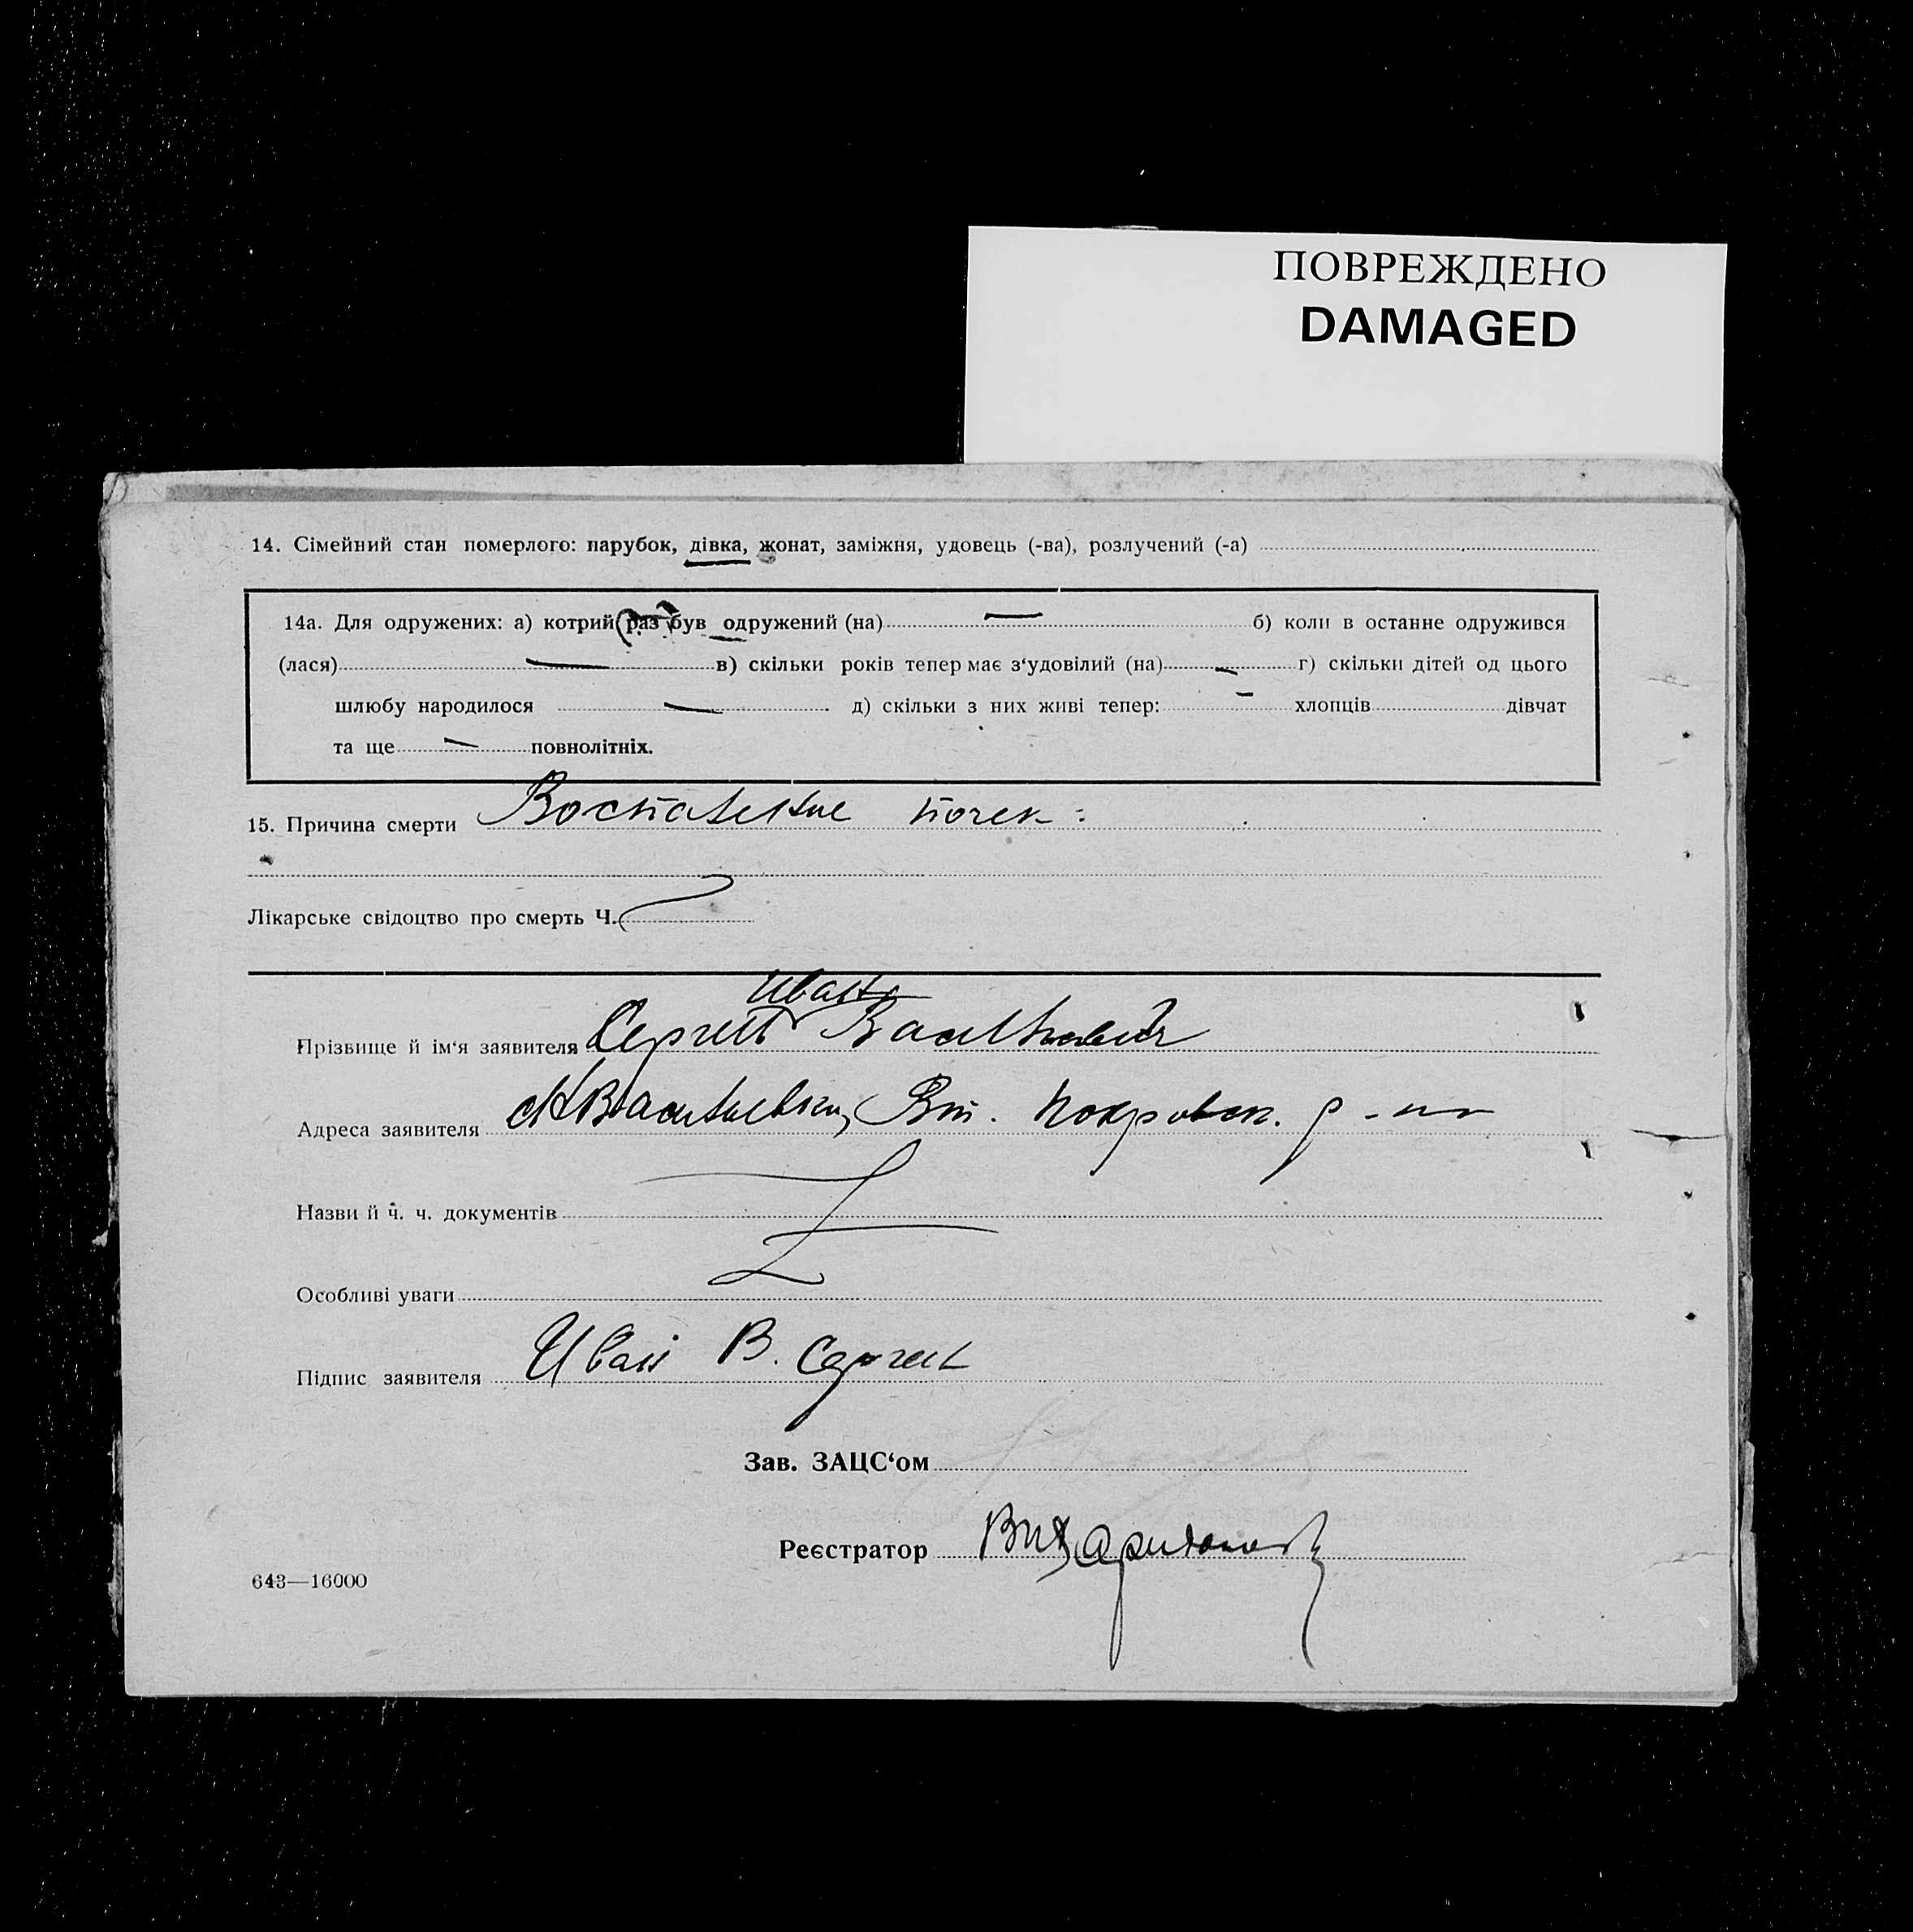 ПОВРЕЖДЕНО
DAMAGED
14. Сімейний стан померлого: парубок, дівка, жонат, заміжня, удовець (-ва), розлучений (-а)
14а. Для одружених: а) котрий раз був одружений (на) — б) коли в останне одружився
(лася) — в) скільки років тепер має з‘удовілий (на) — г) скільки дітей од цього
шлюбу народилося — д) скільки з них живі тепер: — хлопців дівчат
та ще — повнолітніх.
15. Причина смерти Воспаление почек
Лікарське свідоцтво про смерть Ч.
Иван
Прізвище й ім‘я заявителя Сергей Васильевич
Адреса заявителя Васильевка, Вт. Покровск. р-на
Назви й ч. ч. документів
Особливі уваги
Підпис заявителя Иван В. Сергей
Зав. ЗАЦС‘ом
Реєстратор
643—16000